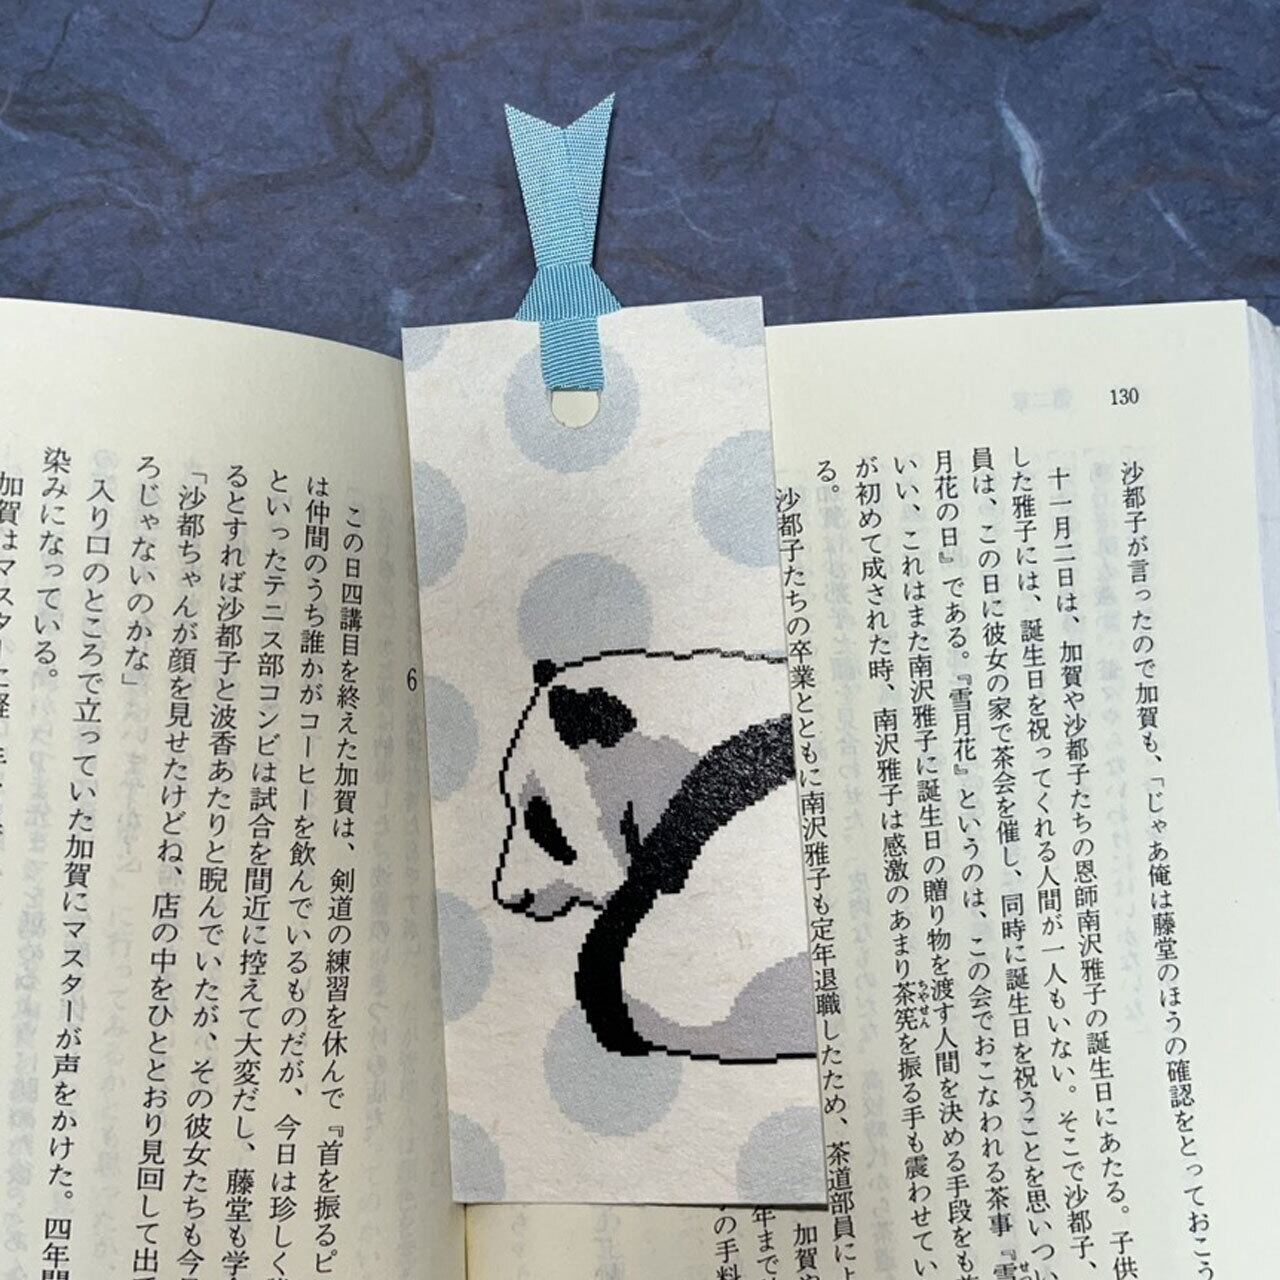 130
沙都子が言ったので加賀も、「じゃあ俺は藤堂のほうの確認をとっておこう
十一月二日は、加賀や沙都子たちの恩師南沢雅子の誕生日にあたる。子供
した雅子には、誕生日を祝ってくれる人間が一人もいない。そこで沙都子、
員は、この日に彼女の家で茶会を催し、同時に誕生日を祝うことを思いつい
月花の日』である。『雪月花』というのは、この会でおこなわれる茶事『雪
いい、これはまた南沢雅子に誕生日の贈り物を渡す人間を決める手段をも
が初めて成された時、南沢雅子は感激のあまり茶筅を振る手も震わせてい
ちやせん
る。
沙都子たちの卒業とともに南沢雅子も定年退職したため、茶道部員によ
加賀や
年まで
の手料
6
この日四講目を終えた加賀は、剣道の練習を休んで『首を振るピ
は仲間のうち誰かがコーヒーを飲んでいるものだが、今日は珍しく
といったテニス部コンビは試合を間近に控えて大変だし、藤堂も学
るとすれば沙都子と波香あたりと睨んでいたが、その彼女たちも今
「沙都ちゃんが顔を見せたけどね、店の中をひととおり見回して出
ろじゃないのかな」
入り口のところで立っていた加賀にマスターが声をかけた。四年間
染みになっている。
加賀はマスターに